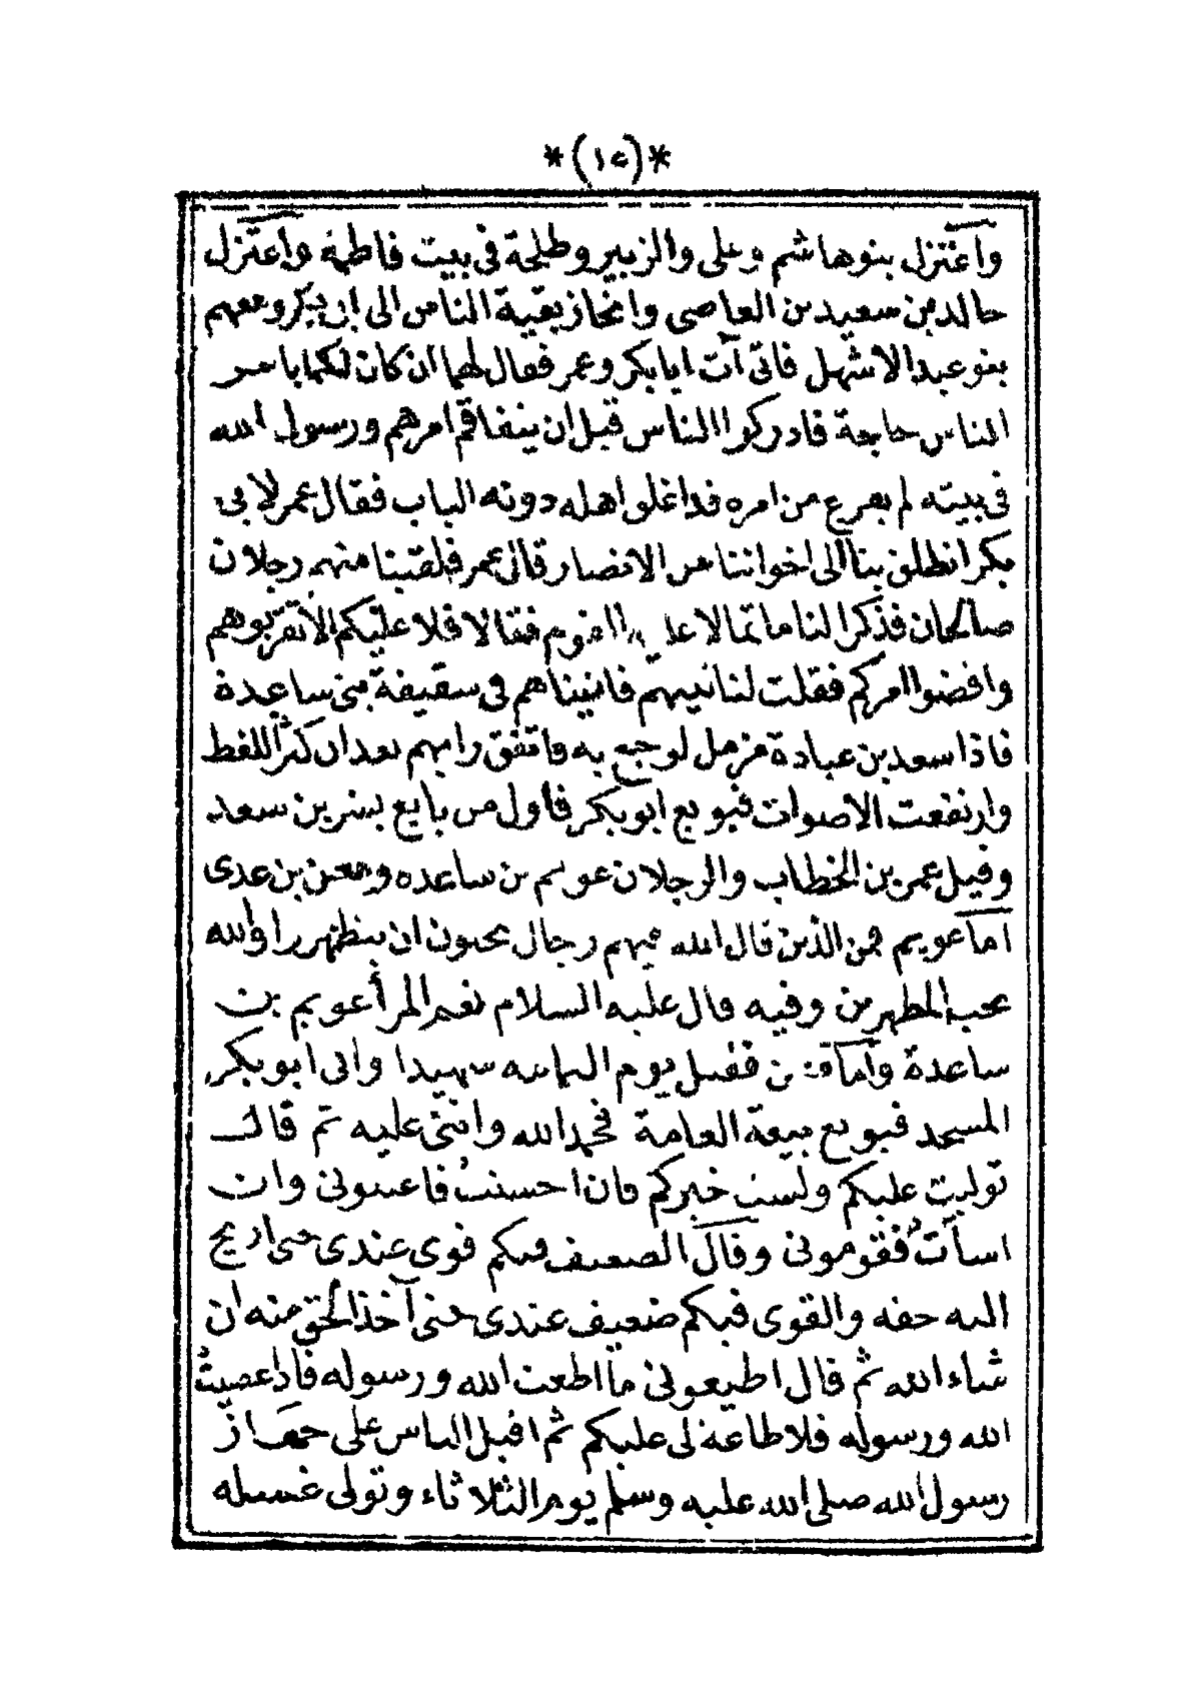 *(١٥)*
واعتزل بنوهاشم وعلى والزبير وطلحة فى بيت فاطمة واعتزل
خالد بن سعيد بن العاصى وانحاز بقية الناس الى ابى بكر ومعهم
بنو عبد الاشهل فاتى آت ابابكر وعمر فقال لهما ان كان لكما بامر
الناس حاجة فادركوا الناس قبل ان يتفاقم امرهم ورسول الله
فى بيته لم يفرغ من امره قد اغلق اهله دونه الباب فقال عمر لابى
بكر انطلق بنا الى اخواننا من الانصار قال عمر فلقينا منهم رجلان
صالحان فذكرا لنا ما تمالا عليه القوم فقالا فلا عليكم الا تقربوهم
واقضوا امركم فقلت لناتيهم فاتيناهم فى سقيفة بنى ساعدة
فاذا سعد بن عبادة مزمل لوجع به فاتفق رايهم بعد ان كثر اللغط
وارتفعت الاصوات فبويع ابوبكر فاول من بايع بشر بن سعد
وقيل عمر بن الخطاب والرجلان عويم بن ساعده ومعن بن عدى
اما عويم فمن الذين قال الله فيهم رجال يحبون ان يتطهروا والله
يحب المطهرين وفيه قال عليه السلام نعم المرأ عويم بن
ساعدة واما معن فقتل يوم اليمامه شهيدا واتى ابوبكر
المسجد فبويع بيعة العامة فحمد الله واثنى عليه ثم قال
توليت عليكم ولست خيركم فان احسنت فاعينونى وان
اسأت فقومونى وقال الضعيف فيكم قوى عندى حتى اريح
اليه حقه والقوى فيكم ضعيف عندى حتى آخذ الحق منه ان
شاء الله ثم قال اطيعونى ما اطعت الله ورسوله فاذا عصيت
الله ورسوله فلا طاعة لى عليكم ثم اقبل الناس على جهاز
رسول الله صلى الله عليه وسلم يوم الثلاثاء وتولى غسله